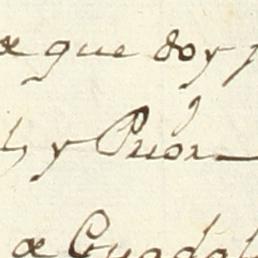 que doy
y Prior
de Guadal